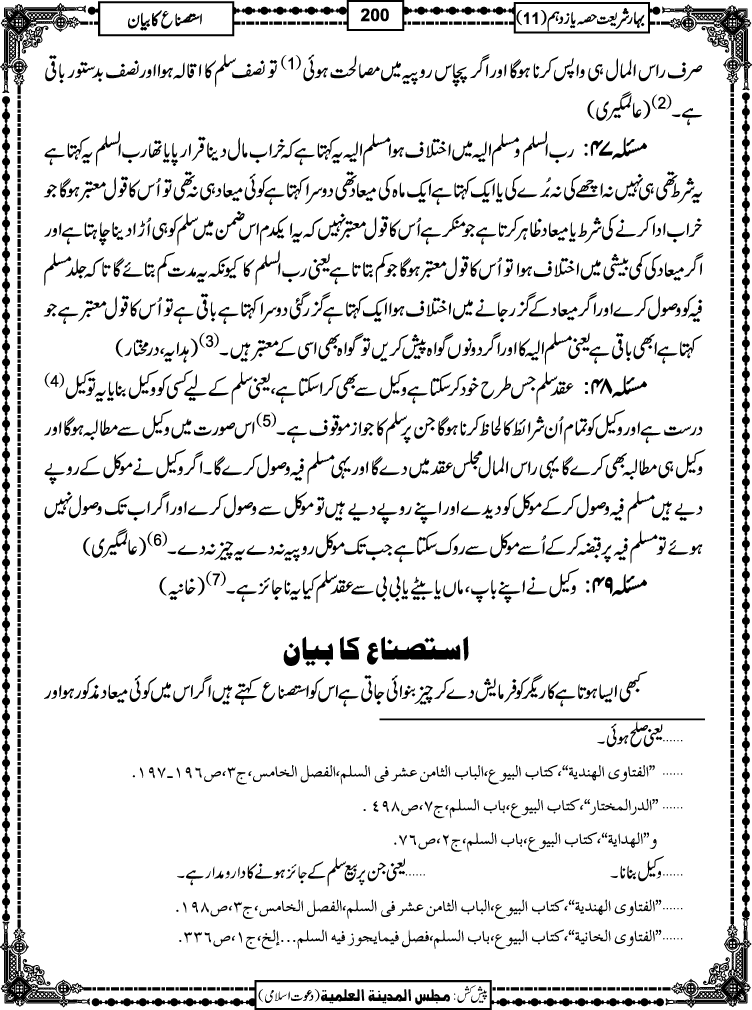 بہار شریعت حصہ یازدہم (11)
200
استصناع کا بیان
صرف راس المال ہی واپس کرنا ہوگا اور اگر پچاس روپیہ میں مصالحت ہوئی (1) تو نصف سلم کا اقالہ ہوا اور نصف بدستور باقی
ہے۔ (2) (عالمگیری)
مسئلہ ۴۷: رب السلم و مسلم الیہ میں اختلاف ہوا مسلم الیہ یہ کہتا ہے کہ خراب مال دینا قرار پایا تھا رب السلم یہ کہتا ہے
یہ شرط تھی ہی نہیں نہ اچھے کی نہ بُرے کی یا ایک کہتا ہے ایک ماہ کی میعاد تھی دوسرا کہتا ہے کوئی میعاد ہی نہ تھی تو اُس کا قول معتبر ہوگا جو
خراب ادا کرنے کی شرط یا میعاد ظاہر کرتا ہے جو منکر ہے اُس کا قول معتبر نہیں کہ یہ ایکدم اس ضمن میں سلم کو ہی اُڑا دینا چاہتا ہے اور
اگر میعاد کی کمی بیشی میں اختلاف ہوا تو اُس کا قول معتبر ہوگا جو کم بتاتا ہے یعنی رب السلم کا کیونکہ یہ مدت کم بتائے گا تاکہ جلد مسلم
فیہ کو وصول کرے اور اگر میعاد کے گزر جانے میں اختلاف ہوا ایک کہتا ہے گزر گئی دوسرا کہتا ہے باقی ہے تو اُس کا قول معتبر ہے جو
کہتا ہے ابھی باقی ہے یعنی مسلم الیہ کا اور اگر دونوں گواہ پیش کریں تو گواہ بھی اسی کے معتبر ہیں۔ (3) (ہدایہ، درمختار)
مسئلہ ۴۸: عقد سلم جس طرح خود کر سکتا ہے وکیل سے بھی کرا سکتا ہے، یعنی سلم کے لیے کسی کو وکیل بنایا یہ توکیل (4)
درست ہے اور وکیل کو تمام اُن شرائط کا لحاظ کرنا ہوگا جن پر سلم کا جواز موقوف ہے۔ (5) اس صورت میں وکیل سے مطالبہ ہوگا اور
وکیل ہی مطالبہ بھی کرے گا یہی راس المال مجلس عقد میں دے گا اور یہی مسلم فیہ وصول کرے گا۔ اگر وکیل نے موکل کے روپے
دیے ہیں مسلم فیہ وصول کر کے موکل کو دیدے اور اپنے روپے دیے ہیں تو موکل سے وصول کرے اور اگر اب تک وصول نہیں
ہوئے تو مسلم فیہ پر قبضہ کر کے اُسے موکل سے روک سکتا ہے جب تک موکل روپیہ نہ دے یہ چیز نہ دے۔ (6) (عالمگیری)
مسئلہ ۴۹: وکیل نے اپنے باپ، ماں یا بیٹے یا بی بی سے عقد سلم کیا یہ ناجائز ہے۔ (7) (خانیہ)
استصناع کا بیان
کبھی ایسا ہوتا ہے کاریگر کو فرمایش دے کر چیز بنوائی جاتی ہے اس کو استصناع کہتے ہیں اگر اس میں کوئی میعاد مذکور ہو اور
......یعنی صلح ہوئی۔
...... ”الفتاوی الهندیة“، کتاب البیوع، الباب الثامن عشر فی السلم، الفصل الخامس، ج۳، ص۱۹٦۔۱۹۷.
...... ”الدرالمختار“، کتاب البیوع، باب السلم، ج۷، ص۴۹۸.
و”الهدایة“، کتاب البیوع، باب السلم، ج۲، ص۷٦.
......وکیل بنانا۔ ......یعنی جن پر بیع سلم کے جائز ہونے کا دارومدار ہے۔
...... ”الفتاوی الهندیة“، کتاب البیوع، الباب الثامن عشر فی السلم، الفصل الخامس، ج۳، ص۱۹۸.
...... ”الفتاوی الخانیة“، کتاب البیوع، باب السلم، فصل فیما یجوز فیه السلم...إلخ، ج۱، ص۳۳٦.
پیش کش: مجلس المدینة العلمیة (دعوت اسلامی)